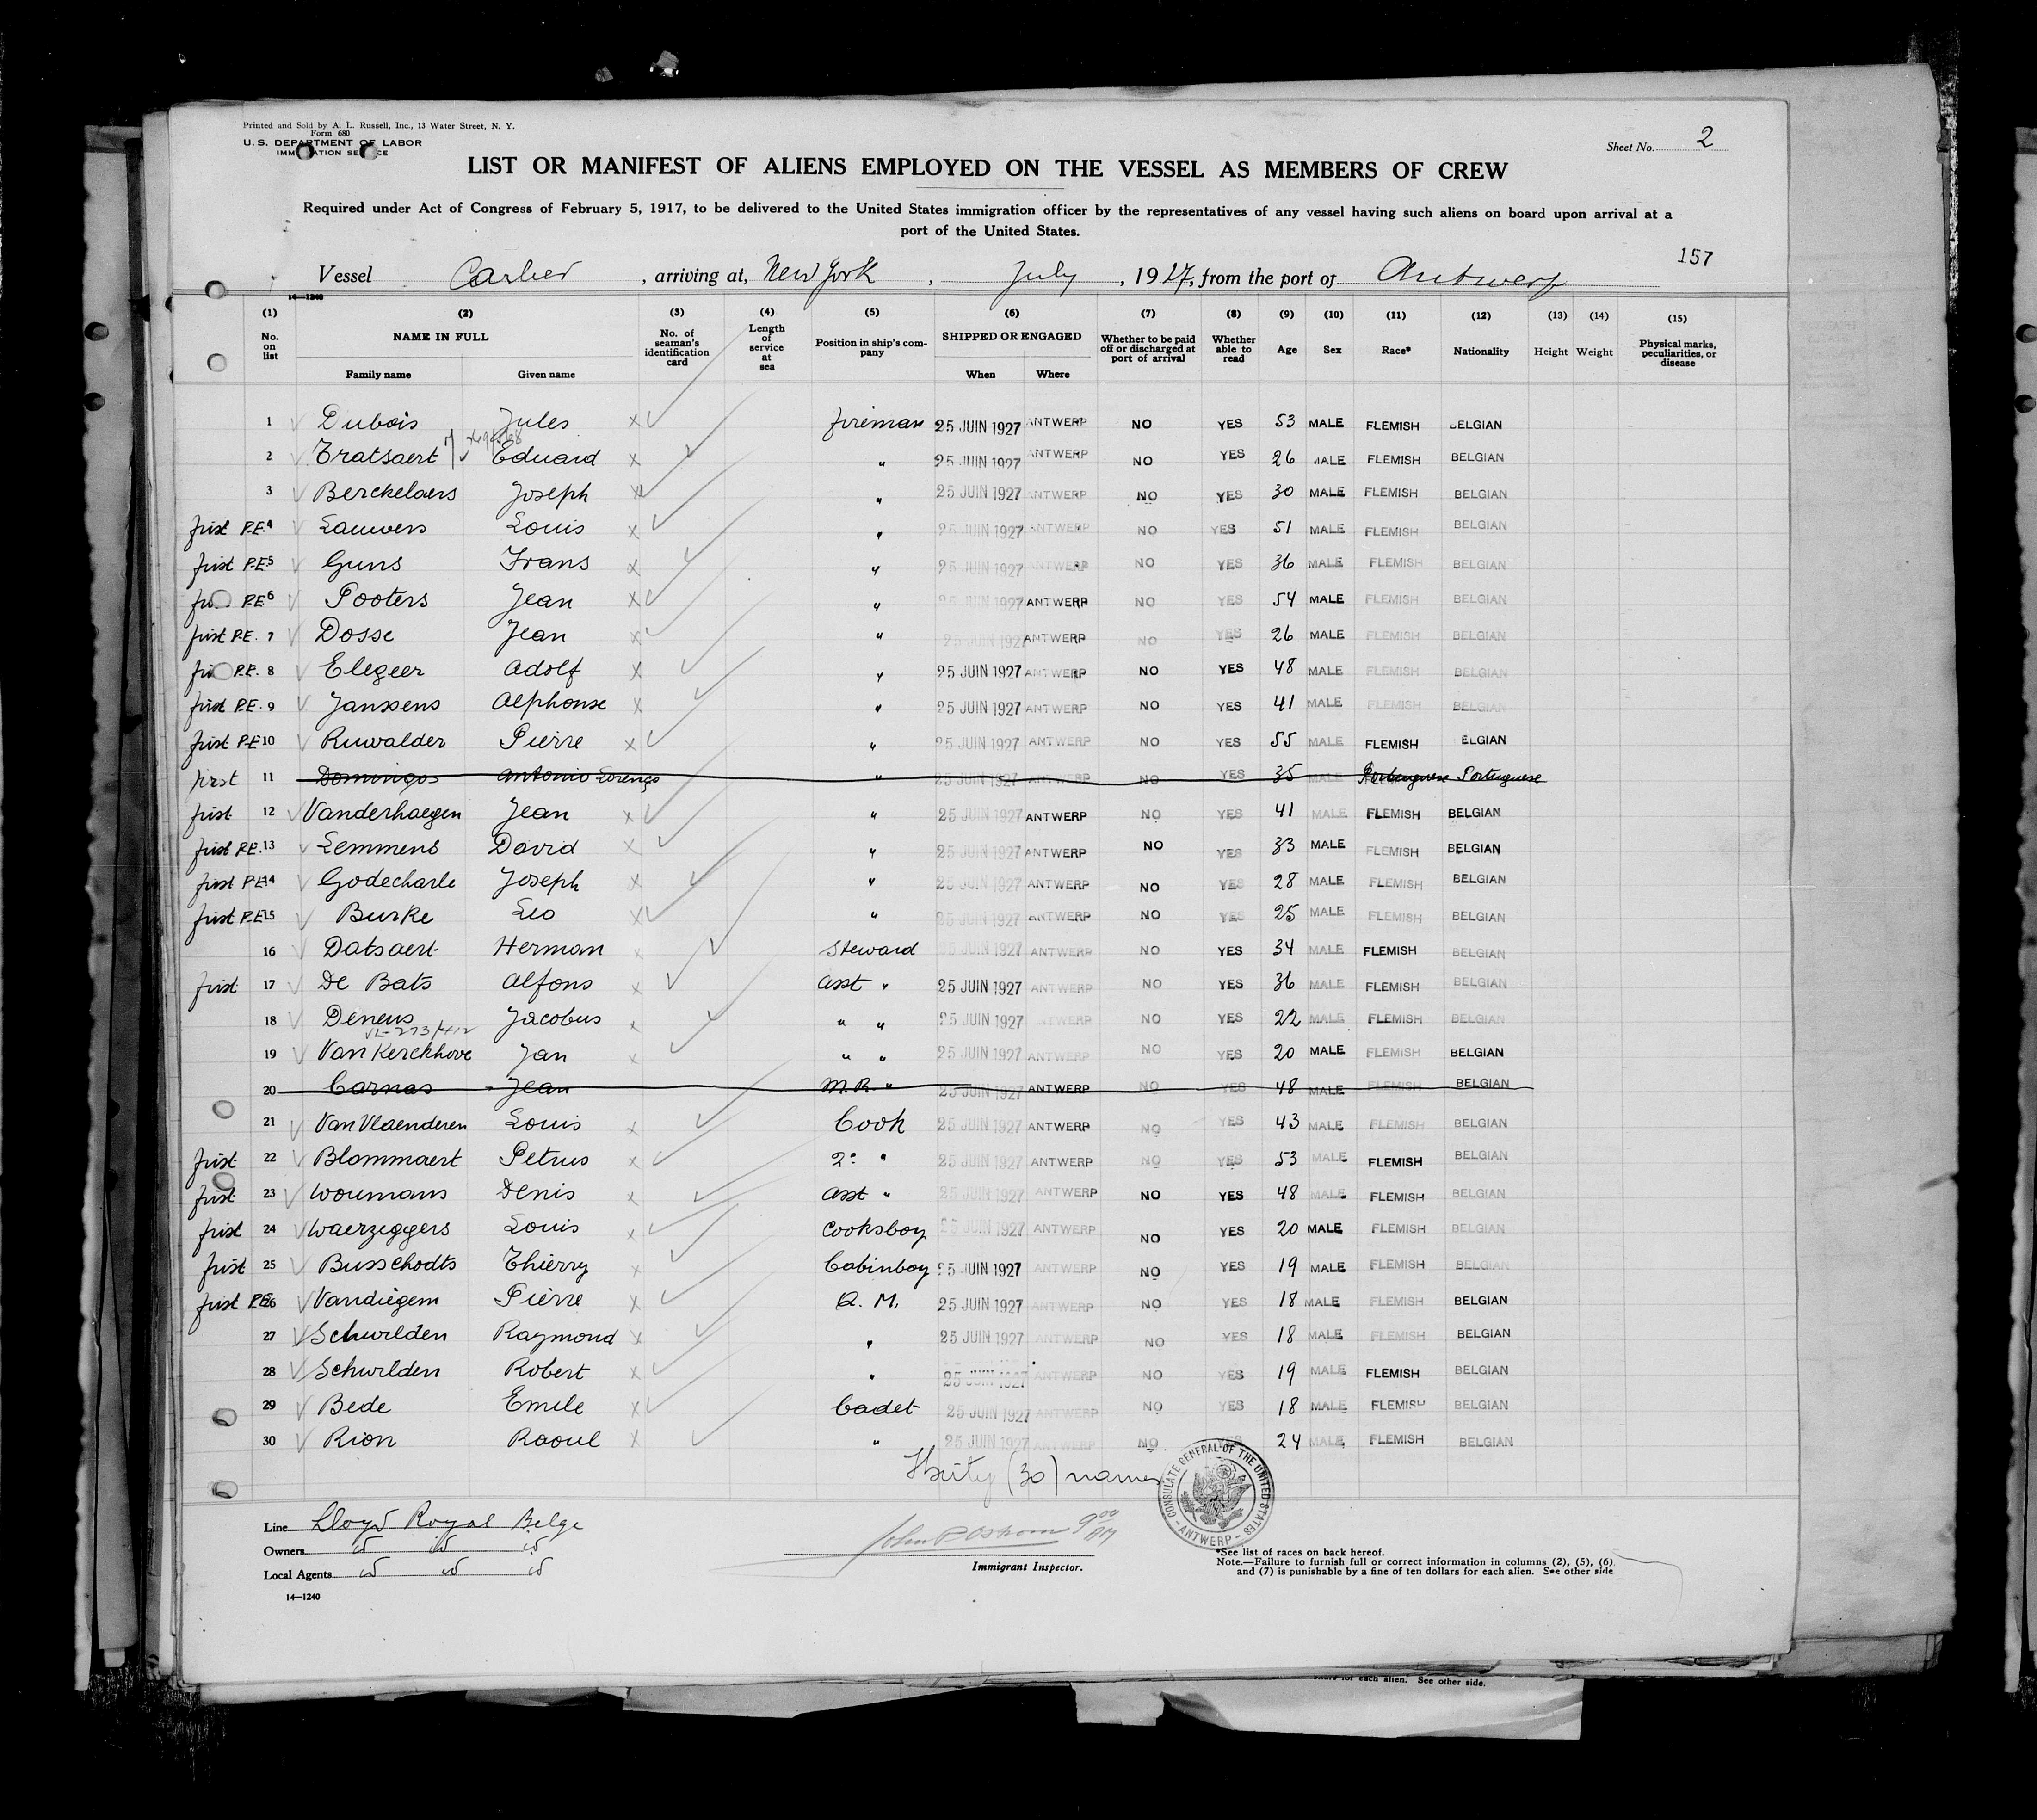 Printed and Sold by A. L. Russell, Inc., 13 Water Street, N. Y.
Form 680
U. S. DEPARTMENT OF LABOR
IMMIGRATION SERVICE
Sheet No. 2
LIST OR MANIFEST OF ALIENS EMPLOYED ON THE VESSEL AS MEMBERS OF CREW
Required under Act of Congress of February 5, 1917, to be delivered to the United States immigration officer by the representatives of any vessel having such aliens on board upon arrival at a
port of the United States.
157
Vessel Carlier, arriving at, New York, July, 1927, from the port of Antwerp
14—1240
(1) No. on list (2) NAME IN FULL Family name Given name (3) No. of seaman's identification card (4) Length of service at sea (5) Position in ship's company (6) SHIPPED OR ENGAGED When Where (7) Whether to be paid off or discharged at port of arrival (8) Whether able to read (9) Age (10) Sex (11) Race* (12) Nationality (13) Height (14) Weight (15) Physical marks, peculiarities, or disease
1 Dubois Jules x fireman 25 JUIN 1927 ANTWERP NO YES 53 MALE FLEMISH BELGIAN
2 Tratsaert Eduard x " 25 JUIN 1927 ANTWERP NO YES 26 MALE FLEMISH BELGIAN
3 Berckelaers Joseph x " 25 JUIN 1927 ANTWERP NO YES 30 MALE FLEMISH BELGIAN
first P.E. 4 Lauwers Louis x " 25 JUIN 1927 ANTWERP NO YES 51 MALE FLEMISH BELGIAN
first P.E. 5 Guns Frans x " 25 JUIN 1927 ANTWERP NO YES 36 MALE FLEMISH BELGIAN
first P.E. 6 Pooters Jean x " 25 JUIN 1927 ANTWERP NO YES 54 MALE FLEMISH BELGIAN
first P.E. 7 Dosse Jean x " 25 JUIN 1927 ANTWERP NO YES 26 MALE FLEMISH BELGIAN
first P.E. 8 Elegeer Adolf x " 25 JUIN 1927 ANTWERP NO YES 48 MALE FLEMISH BELGIAN
first P.E. 9 Janssens Alphonse x " 25 JUIN 1927 ANTWERP NO YES 41 MALE FLEMISH BELGIAN
first P.E. 10 Ruwalder Pierre x " 25 JUIN 1927 ANTWERP NO YES 55 MALE FLEMISH BELGIAN
first 11 Domingos Antonio Lorenço " 25 JUIN 1927 ANTWERP NO YES 35 MALE Portuguese Portuguese
first 12 Vanderhaegen Jean x " 25 JUIN 1927 ANTWERP NO YES 41 MALE FLEMISH BELGIAN
first P.E. 13 Lemmens David x " 25 JUIN 1927 ANTWERP NO YES 33 MALE FLEMISH BELGIAN
first P.E. 14 Godecharle Joseph x " 25 JUIN 1927 ANTWERP NO YES 28 MALE FLEMISH BELGIAN
first P.E. 15 Burke Leo x " 25 JUIN 1927 ANTWERP NO YES 25 MALE FLEMISH BELGIAN
16 Datsaert Herman x Steward 25 JUIN 1927 ANTWERP NO YES 34 MALE FLEMISH BELGIAN
first 17 De Bats Alfons x Asst " 25 JUIN 1927 ANTWERP NO YES 36 MALE FLEMISH BELGIAN
18 Deneus Jacobus x " " 25 JUIN 1927 ANTWERP NO YES 22 MALE FLEMISH BELGIAN
19 Van Kerckhove Jan x " " 25 JUIN 1927 ANTWERP NO YES 20 MALE FLEMISH BELGIAN
20 Carnas Jean M.R. " 25 JUIN 1927 ANTWERP NO YES 48 MALE FLEMISH BELGIAN
21 Van Vlaenderen Louis x Cook 25 JUIN 1927 ANTWERP NO YES 43 MALE FLEMISH BELGIAN
first 22 Blommaert Petrus x 2° " 25 JUIN 1927 ANTWERP NO YES 53 MALE FLEMISH BELGIAN
first 23 Woumans Denis x Asst " 25 JUIN 1927 ANTWERP NO YES 48 MALE FLEMISH BELGIAN
first 24 Waerzeggers Louis x Cooksboy 25 JUIN 1927 ANTWERP NO YES 20 MALE FLEMISH BELGIAN
first 25 Busschodts Thierry x Cabinboy 25 JUIN 1927 ANTWERP NO YES 19 MALE FLEMISH BELGIAN
first P.E. 26 Vandiegem Pierre x Q. M. 25 JUIN 1927 ANTWERP NO YES 18 MALE FLEMISH BELGIAN
27 Schwilden Raymond x " 25 JUIN 1927 ANTWERP NO YES 18 MALE FLEMISH BELGIAN
28 Schwilden Robert x " 25 JUIN 1927 ANTWERP NO YES 19 MALE FLEMISH BELGIAN
29 Bede Emile x Cadet 25 JUIN 1927 ANTWERP NO YES 18 MALE FLEMISH BELGIAN
30 Rion Raoul x " 25 JUIN 1927 ANTWERP NO YES 24 MALE FLEMISH BELGIAN
Thirty (30) names
CONSULATE GENERAL OF THE UNITED STATES - ANTWERP -
Line Lloyd Royal Belge
Owners
Local Agents
14—1240
Immigrant Inspector.
*See list of races on back hereof.
Note.—Failure to furnish full or correct information in columns (2), (5), (6)
and (7) is punishable by a fine of ten dollars for each alien. See other side
for each alien. See other side.